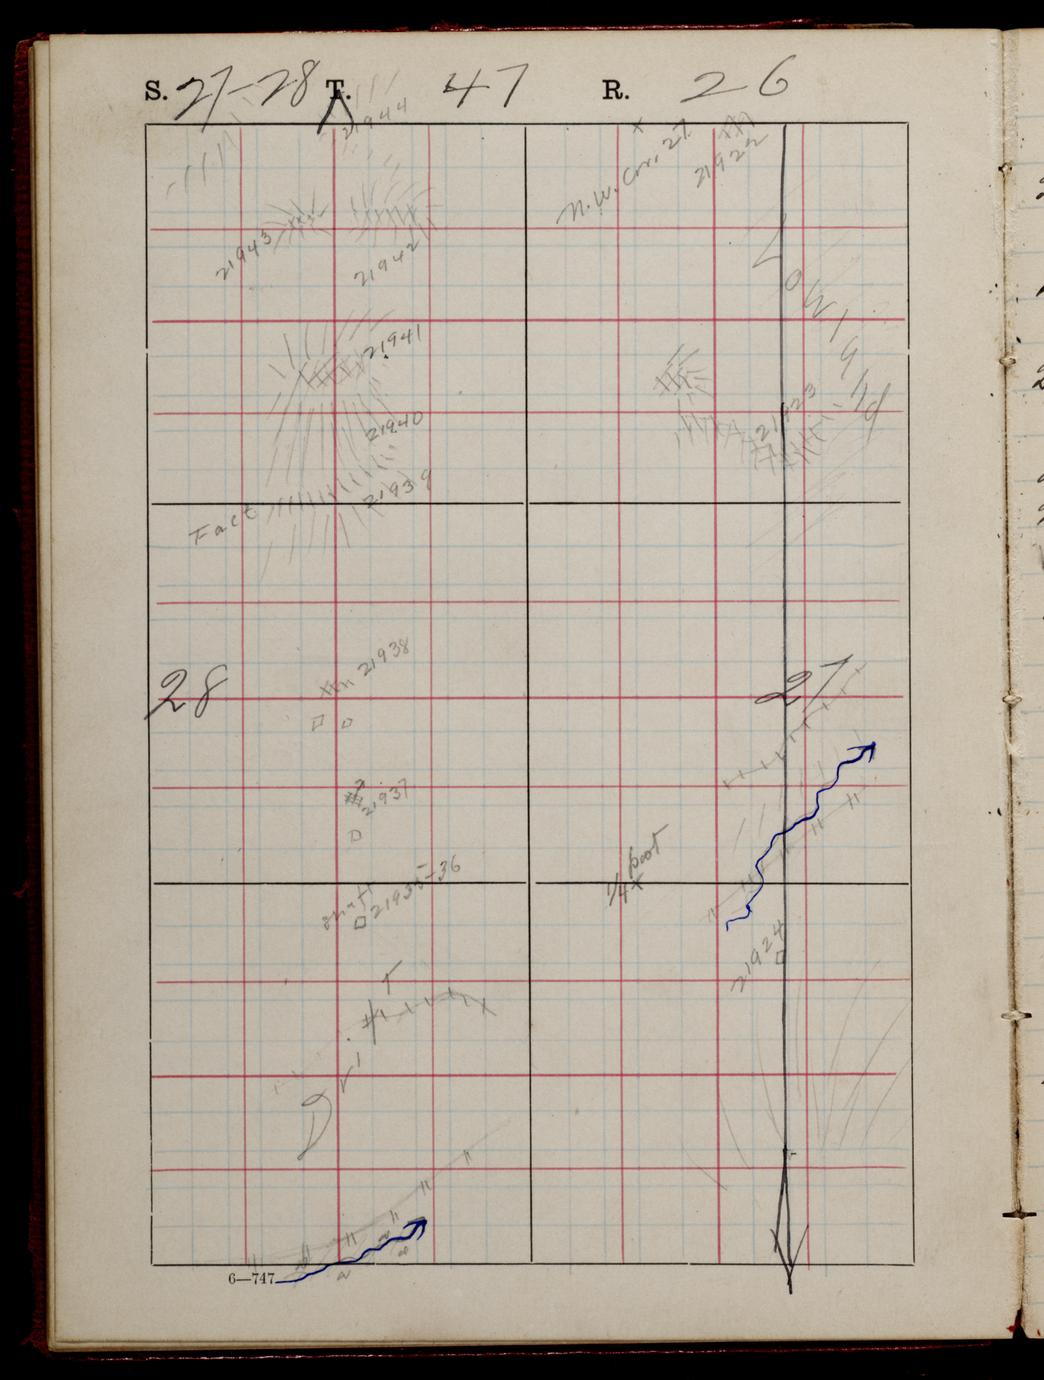 S. 27-28 T. 47 R. 26
21944
N.W. Cor. 27
21922
21943
21942
Low land
21941
21923
21940
21939
Fact
21938
28
27
21937
1/4 post
shaft
21935-36
21924
Drift
6—747